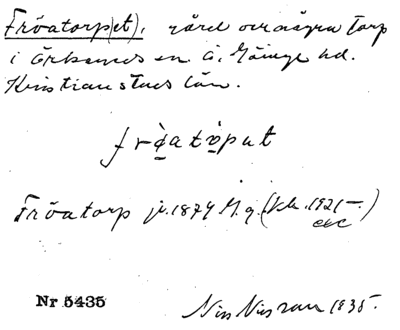 Fröatorp(et), gård och några torp
i Örkeneds sn Ö. Göinge hd.
Kristianstads län.
frǫ̀atǫput
Fröatorp j. 1874 M. g. (Kk. 1921–)
etc
Nr 5435
Nils Nilsson 1935.